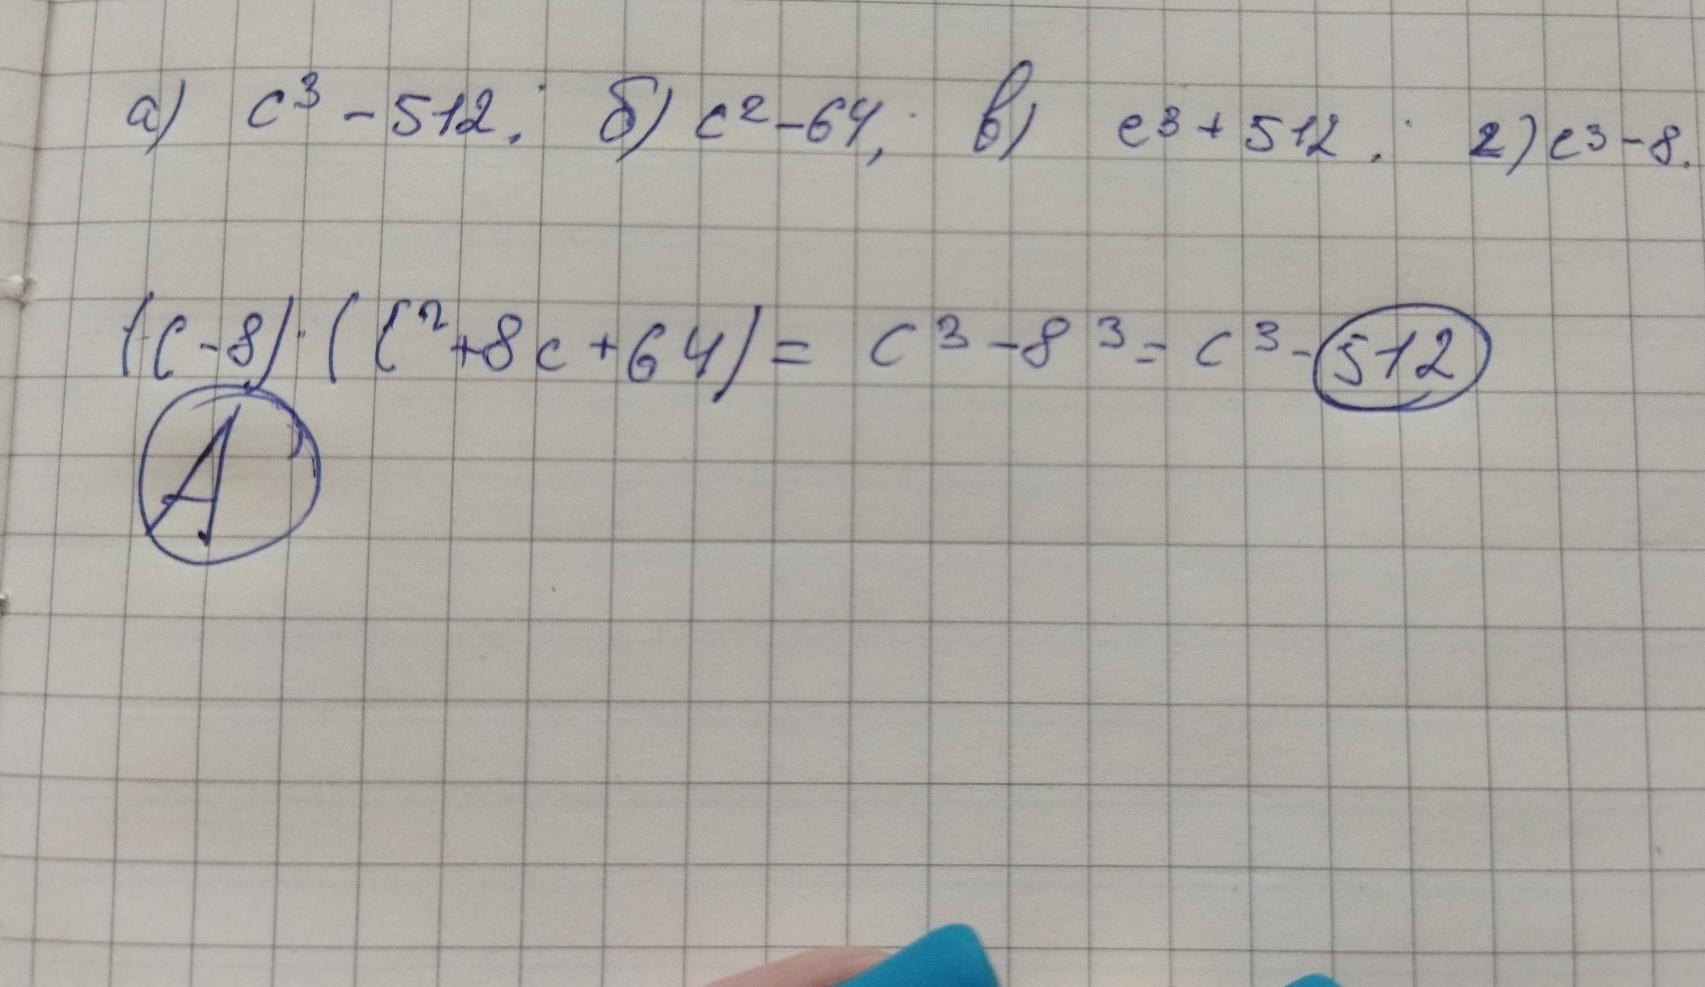 а) c³ - 512; б) c² - 64; в) c³ + 512; г) c³ - 8.
(c - 8) · (c² + 8c + 64) = c³ - 8³ = c³ - 512
А